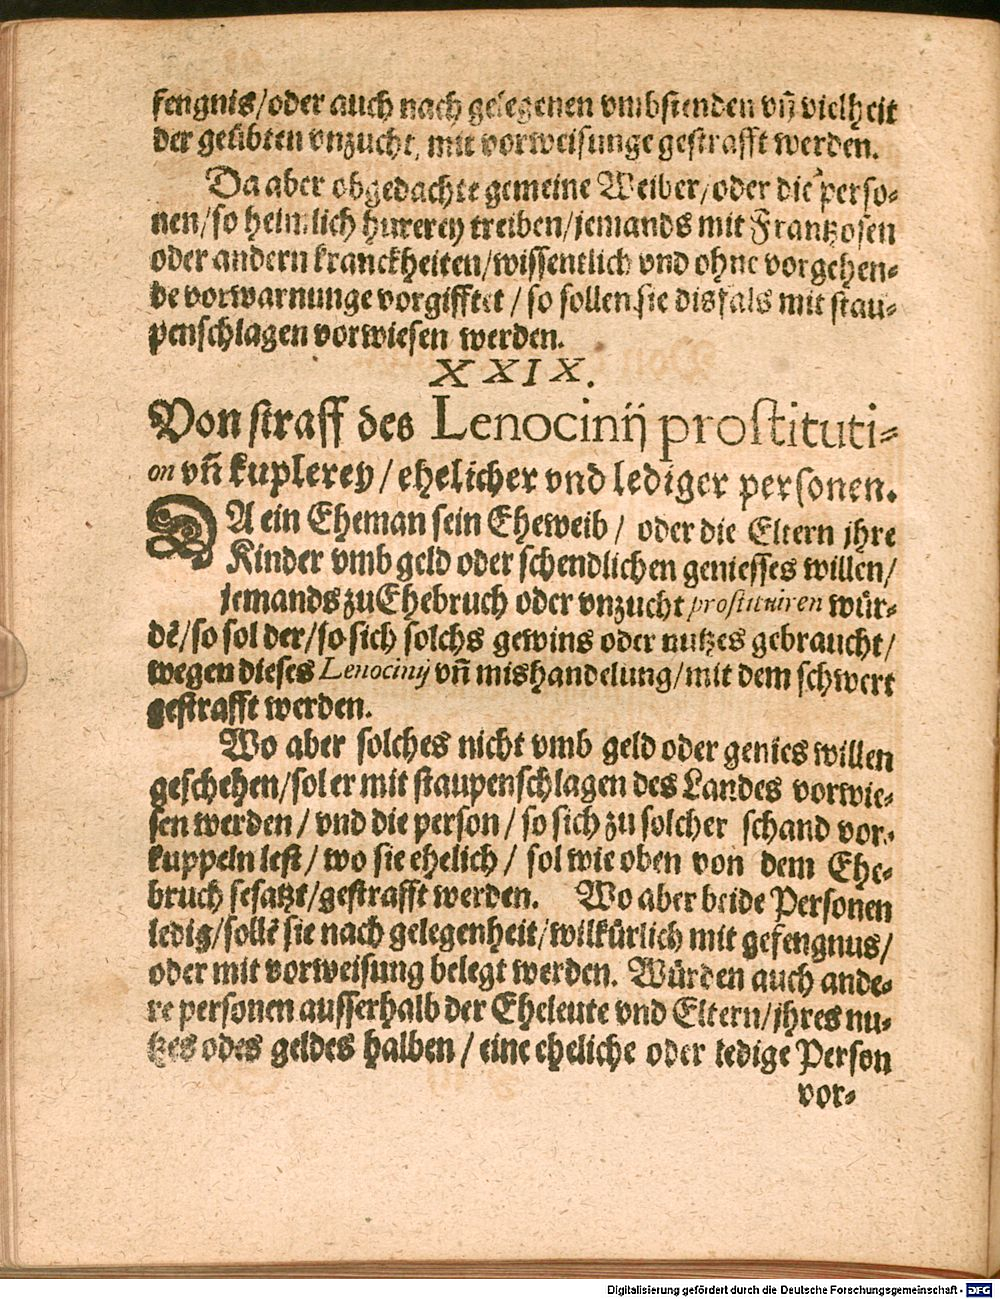 fengnis/oder auch nach gelegenen vmbstenden vñ vielheit
der geübten vnzucht, mit vorweisunge gestrafft werden.
Da aber obgedachte gemeine Weiber/oder die perso⸗
nen/so heimlich hurerey treiben/jemands mit Frantzosen
oder andern kranckheiten/wissentlich vnd ohne vorgehen⸗
de vorwarnunge vorgifftet/so sollen sie disfals mit stau⸗
penschlagen vorwiesen werden.
XXIX.
Von straff des Lenocinij prostituti⸗
on vñ kuplerey/ehelicher vnd lediger personen.
DA ein Eheman sein Eheweib/ oder die Eltern jhre
Kinder vmb geld oder schendlichen geniesses willen/
jemands zu Ehebruch oder vnzucht prostituiren wür⸗
dẽ/so sol der/so sich solchs gewins oder nutzes gebraucht/
wegen dieses Lenocinij vñ mishandelung/mit dem schwert
gestrafft werden.
Wo aber solches nicht vmb geld oder genies willen
geschehen/sol er mit staupenschlagen des Landes vorwie⸗
sen werden/vnd die person/so sich zu solcher schand vor⸗
kuppeln lest/wo sie ehelich/ sol wie oben von dem Ehe⸗
bruch gesatzt/gestrafft werden. Wo aber beide Personen
ledig/sollẽ sie nach gelegenheit/wilkürlich mit gefengnus/
oder mit vorweisung belegt werden. Würden auch ande⸗
re personen ausserhalb der Eheleute vnd Eltern/jhres nu⸗
tzes odes geldes halben/eine eheliche oder ledige Person
vor⸗
Digitalisierung gefördert durch die Deutsche Forschungsgemeinschaft - DFG